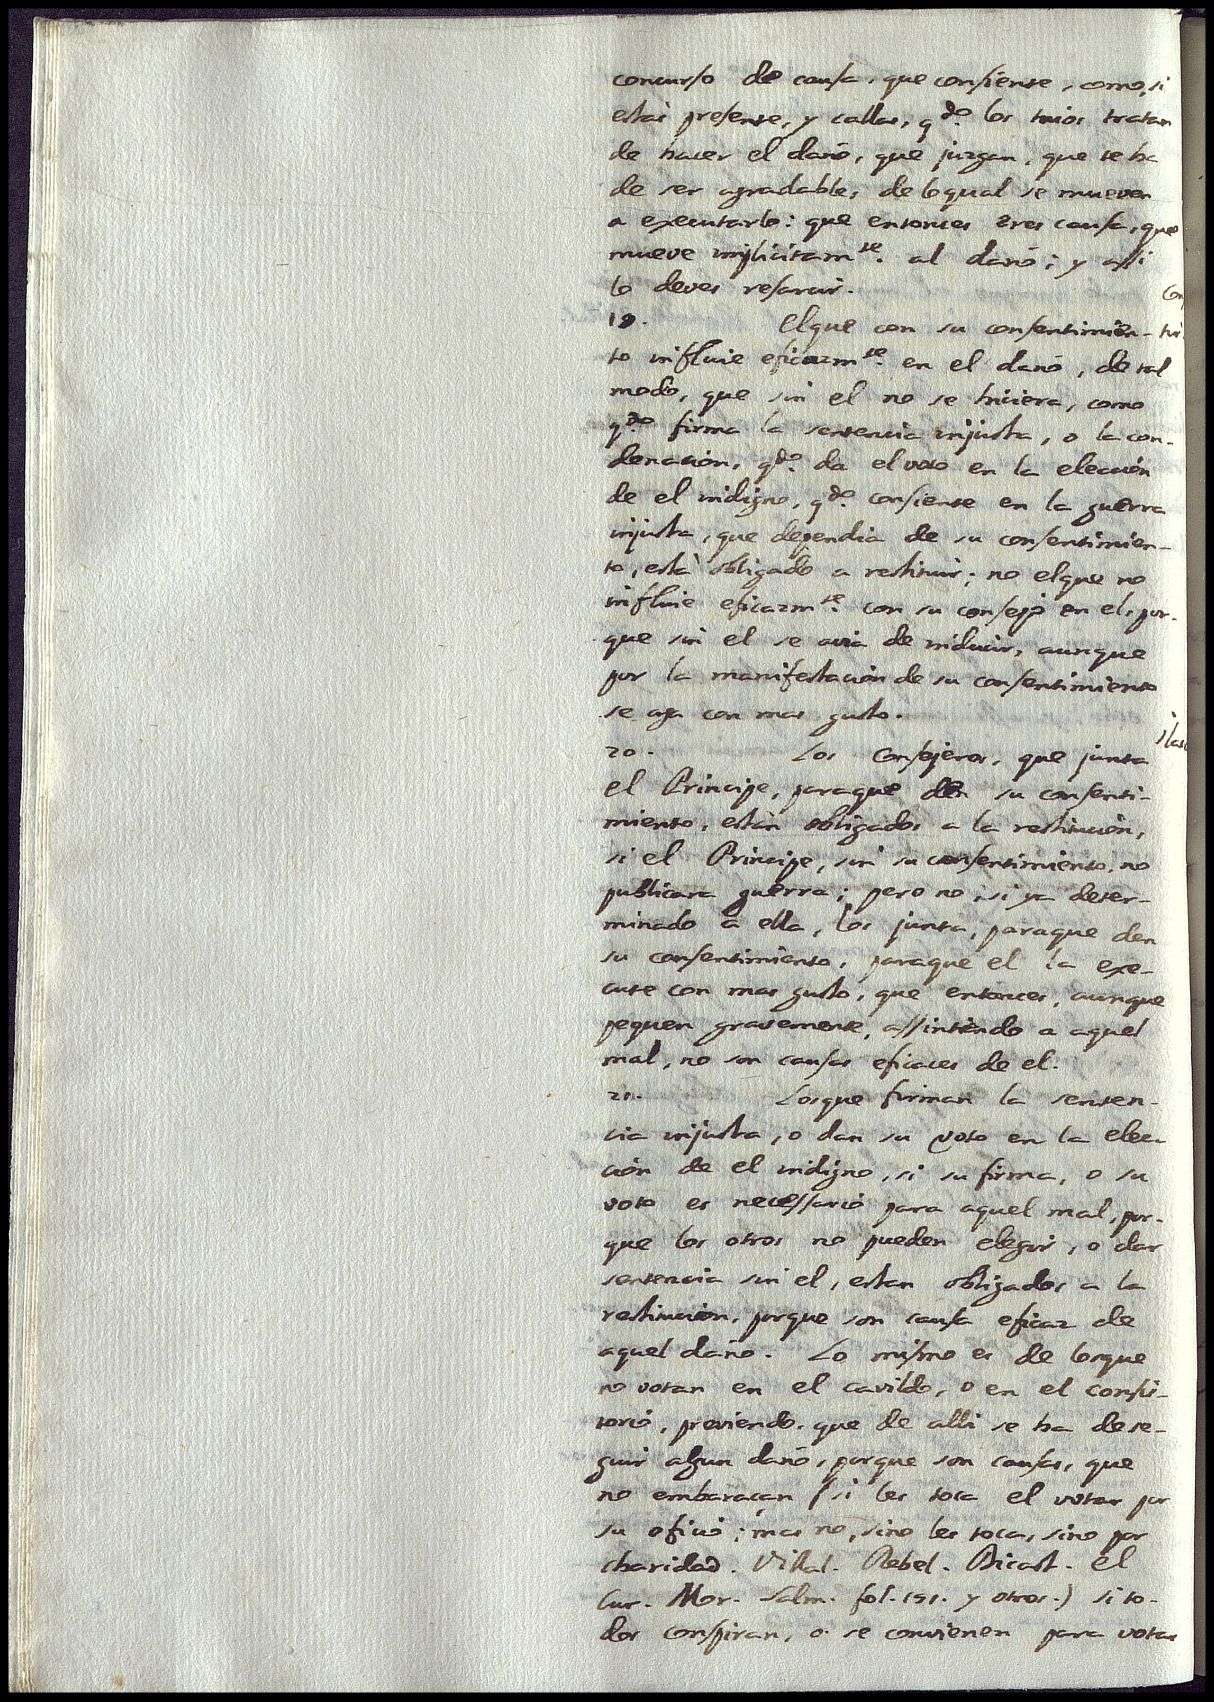 concurso de causa, que consiente, como, si
estàs presente, y callas, q.do los tuios tratan
de hacer el daño, que juzgan, que te ha
de ser agradable, de loqual se mueven
a executarlo: que entonces eres causa, que
mueve implicitam.te al daño; y assi
lo deves resarcir.
19. Elque con su consentimien-
to influie eficazm.te en el daño, de tal
modo, que sin el no se hiciera, como
q.do firma la sentencia injusta, o la con-
denacion, q.do da el voto en la eleccion
de el indigno, q.do consiente en la guerra
injusta, que dependia de su consentimien-
to, està obligado a restituir; no elque no
influie eficazm.te con su consejo en el, por-
que sin el se avia de inducir, aunque
por la manifestacion de su consentimiento
se aga con mas gusto.
20. Los consejeros, que junta
el Principe, paraque den su consenti-
miento, estàn obligados a la restitucion,
si el Principe, sin su consentimiento, no
publicara guerra; pero no, si ya deter-
minado a ella, los junta, paraque den
su consentimiento, paraque el la exe-
cute con mas gusto, que entonces, aunque
pequen gravemente, assintiendo a aquel
mal, no son causas eficaces de el.
21. Losque firman la senten-
cia injusta, o dan su voto en la elec-
ción de el indigno, si su firma, o su
voto es necessario para aquel mal, por-
que los otros no pueden elegir, o dar
sentencia sin el, estan obligados a la
restitucion, porque son causa eficaz de
aquel daño. Lo mismo es de losque
no votan en el cavildo, o en el consis-
torio, previendo, que de alli se ha de se-
guir algun daño, porque son causas, que
no embaraçan (si les toca el votar por
su oficio; mas no, sino les toca, sino por
charidad. Villal. Rebel. Dicast. el
Cur. Mor. Salm. fol. 191. y otros.) si to-
dos conspiran, o se convienen para votar